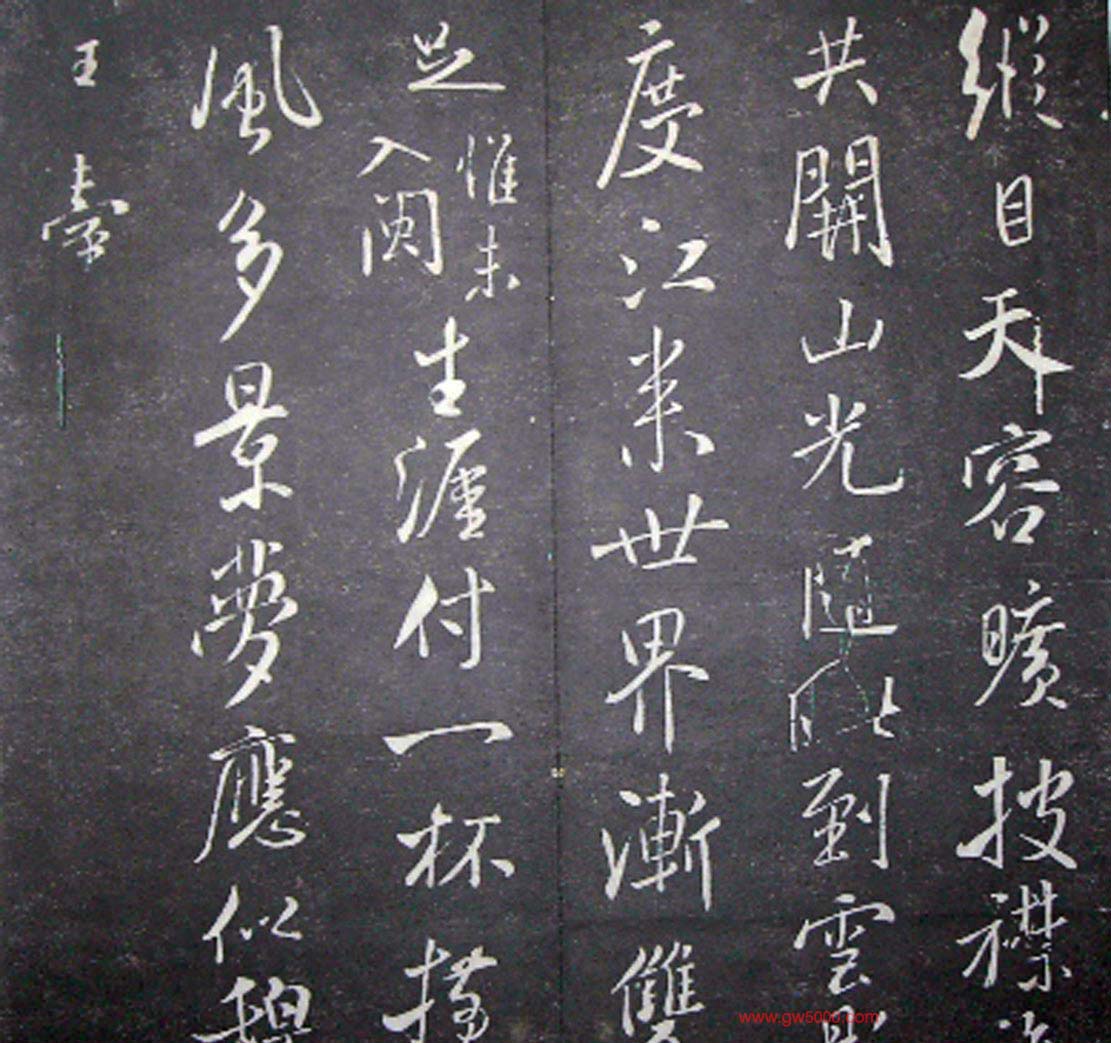 縱目天容曠披襟
共開山光隨
到雲
度江來世界漸雙
足惟未入閩生涯付一杯
風多景夢應似
王
www.gw5000.com